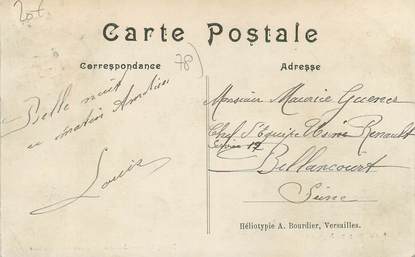 20t
Carte Postale
78
Correspondance
Adresse
Belle nuit
Louis
Monsieur Maurice
Chef d'Equipe Usine Renault
Service 17
Billancourt
Seine
Héliotypie A. Bourdier, Versailles.